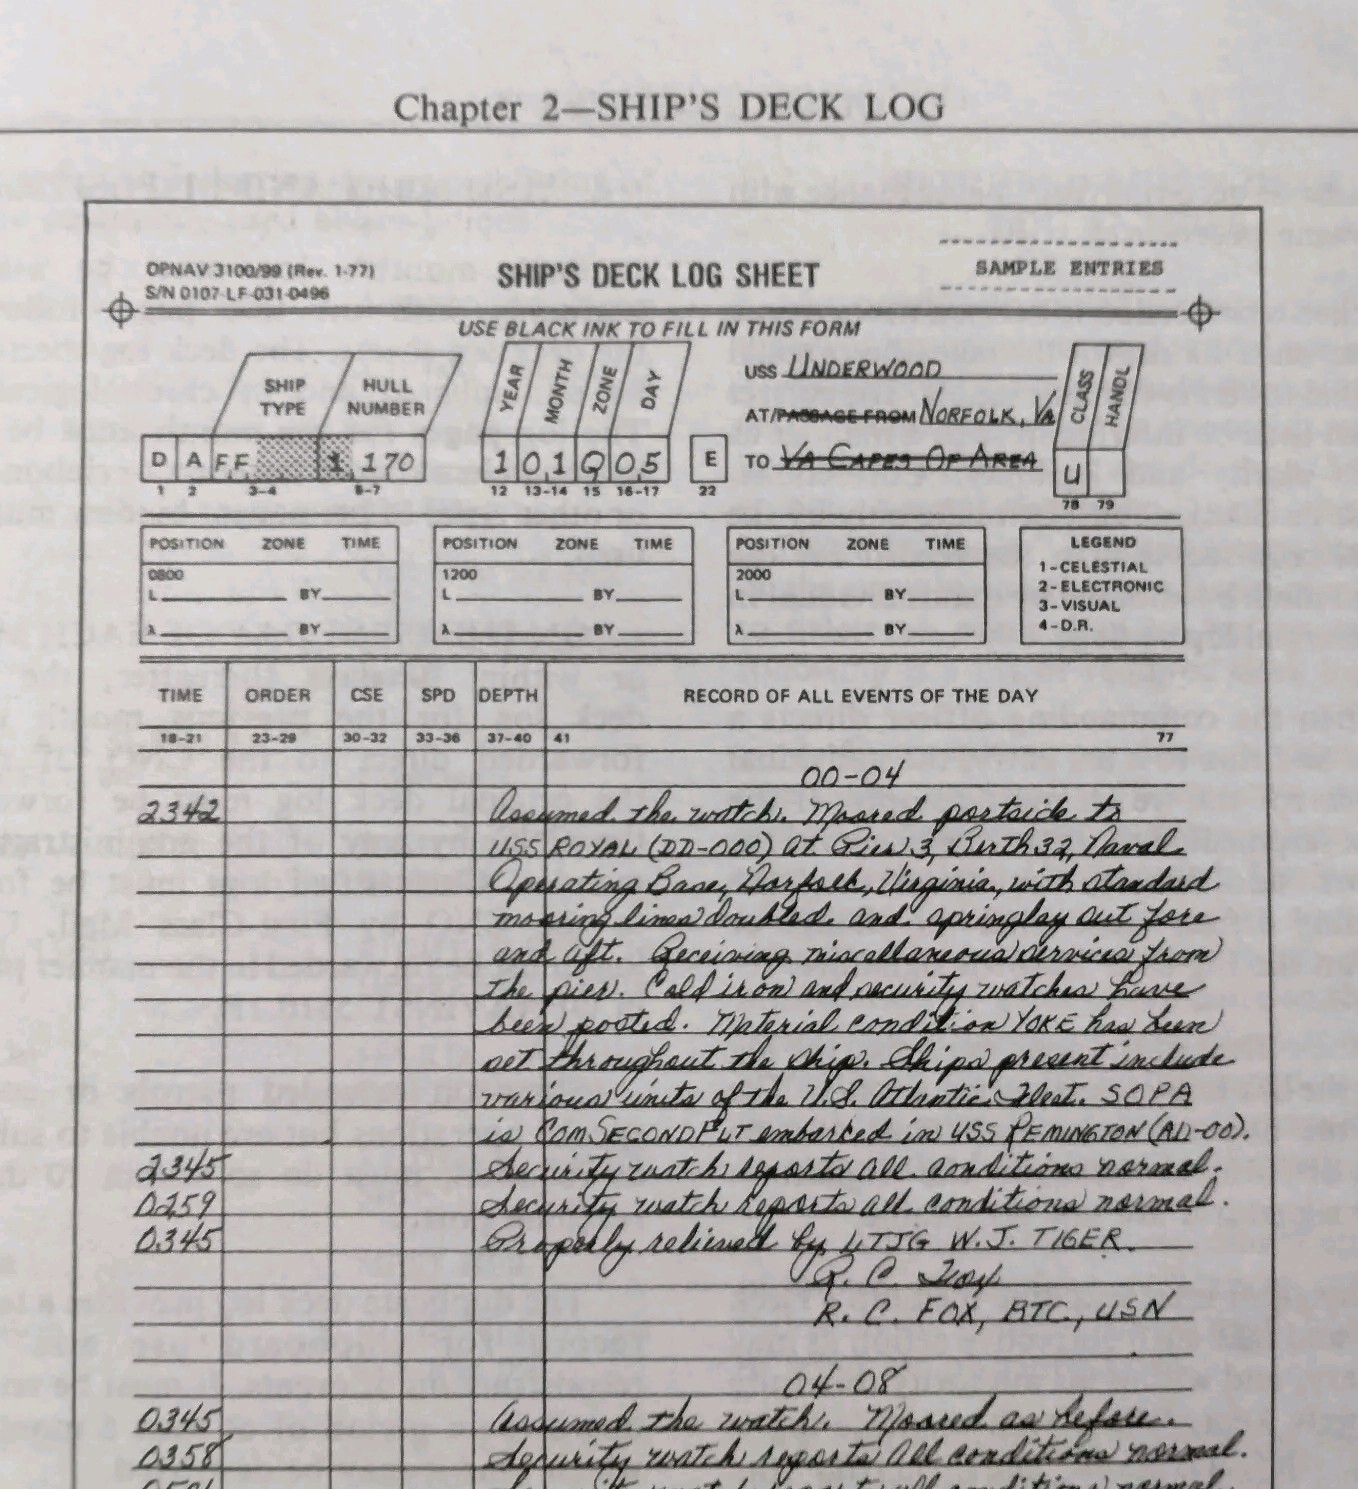 Chapter 2—SHIP'S DECK LOG
OPNAV 3100/99 (Rev. 1-77)
S/N 0107-LF-031-0496
SHIP'S DECK LOG SHEET
SAMPLE ENTRIES
USE BLACK INK TO FILL IN THIS FORM
SHIP TYPE HULL NUMBER YEAR MONTH ZONE DAY CLASS HANDL
USS UNDERWOOD
AT/PASSAGE FROM NORFOLK, VA
D A FF 1 170 1 01 Q 05 E TO VA CAPES OP AREA U
1 2 3-4 5-7 12 13-14 15 16-17 22 78 79
POSITION ZONE TIME POSITION ZONE TIME POSITION ZONE TIME LEGEND
0800 1200 2000 1-CELESTIAL
L BY L BY L BY 2-ELECTRONIC
3-VISUAL
λ BY λ BY λ BY 4-D.R.
TIME ORDER CSE SPD DEPTH RECORD OF ALL EVENTS OF THE DAY
18-21 23-29 30-32 33-36 37-40 41 77
00-04
2342 Assumed the watch. Moored portside to
USS ROYAL (DD-000) at Pier 3, Berth 32, Naval
Operating Base, Norfolk, Virginia, with standard
mooring lines doubled and springlay out fore
and aft. Receiving miscellaneous services from
the pier. Cold iron and security watches have
been posted. Material condition YOKE has been
set throughout the ship. Ships present include
various units of the U.S. Atlantic Fleet. SOPA
is COMSECONDFLT embarked in USS REMINGTON (AD-00).
2345 Security watch reports all conditions normal.
0259 Security watch reports all conditions normal.
0345 Properly relieved by LTJG W.J. TIGER.
R. C. Fox
R. C. FOX, BTC, USN
04-08
0345 Assumed the watch. Moored as before.
0358 Security watch reports all conditions normal.